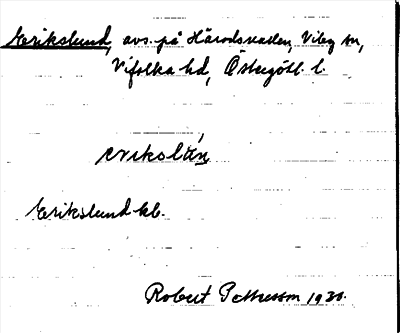 Erikslund, avs. på Häradsvaden, Viby sn,
Vifolka hd, Östergötl. l.
erikslún
Erikslund kb.
Robert Pettersson 1930.